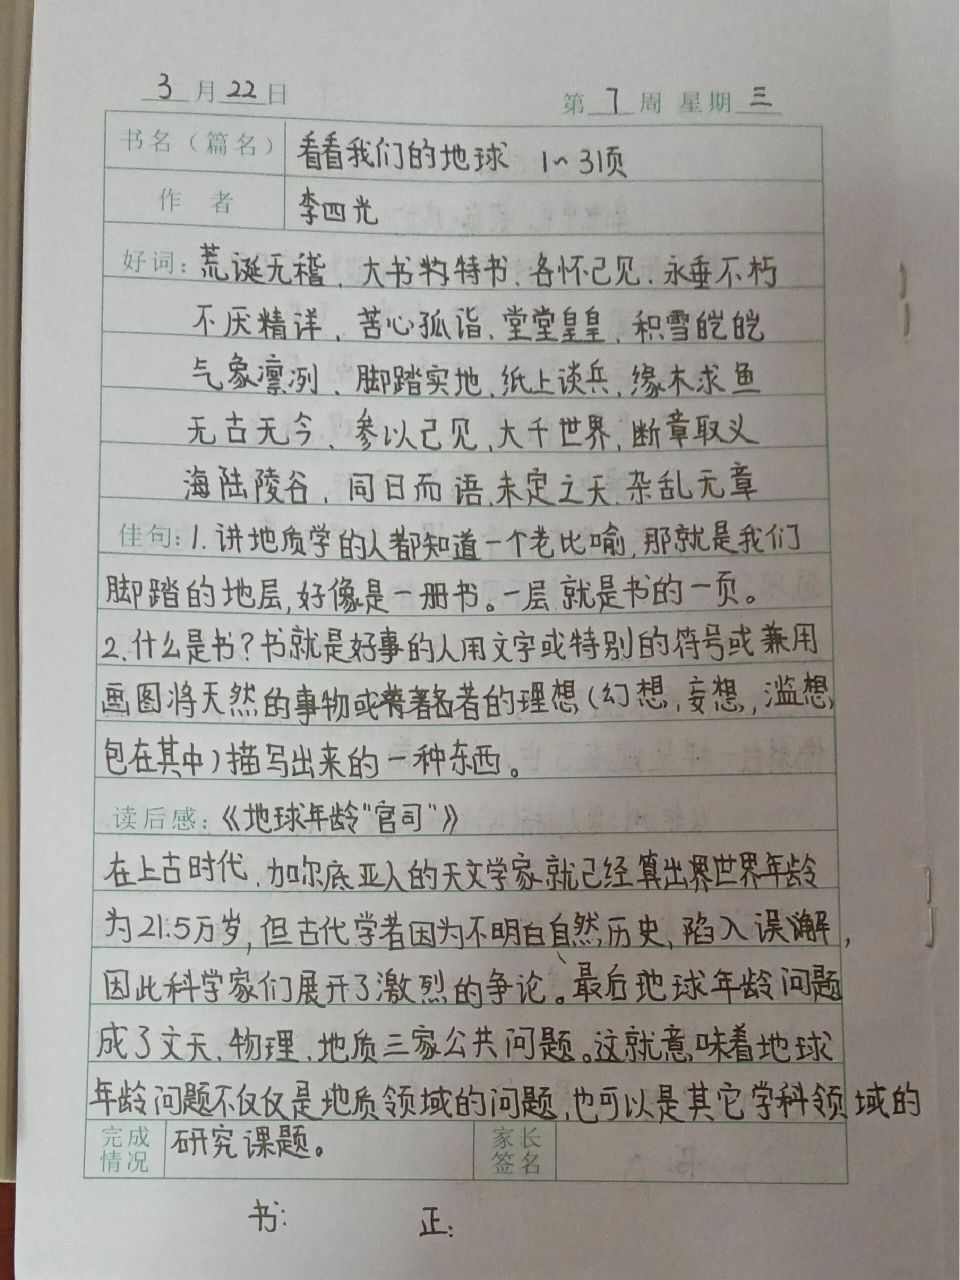 3月22日 第7周 星期三
书名（篇名） 看看我们的地球 1~31页
作者 李四光
好词：荒诞无稽、大书特书、各怀己见、永垂不朽
不厌精详、苦心孤诣、堂堂皇皇、积雪皑皑
气象凛冽、脚踏实地、纸上谈兵、缘木求鱼
无古无今、参以己见、大千世界、断章取义
海陆陵谷、同日而语、未定之天、杂乱无章
佳句：1.讲地质学的人都知道一个老比喻,那就是我们
脚踏的地层,好像是一册书。一层就是书的一页。
2.什么是书?书就是好事的人用文字或特别的符号或兼用
画图将天然的事物或著者的理想(幻想,妄想,滥想
包在其中)描写出来的一种东西。
读后感：《地球年龄"官司"》
在上古时代,加尔底亚人的天文学家就已经算出世界年龄
为21.5万岁,但古代学者因为不明白自然历史,陷入误解,
因此科学家们展开了激烈的争论。最后地球年龄问题
成了文天、物理、地质三家公共问题。这就意味着地球
年龄问题不仅仅是地质领域的问题,也可以是其它学科领域的
完成情况 研究课题。 家长签名
书: 正: